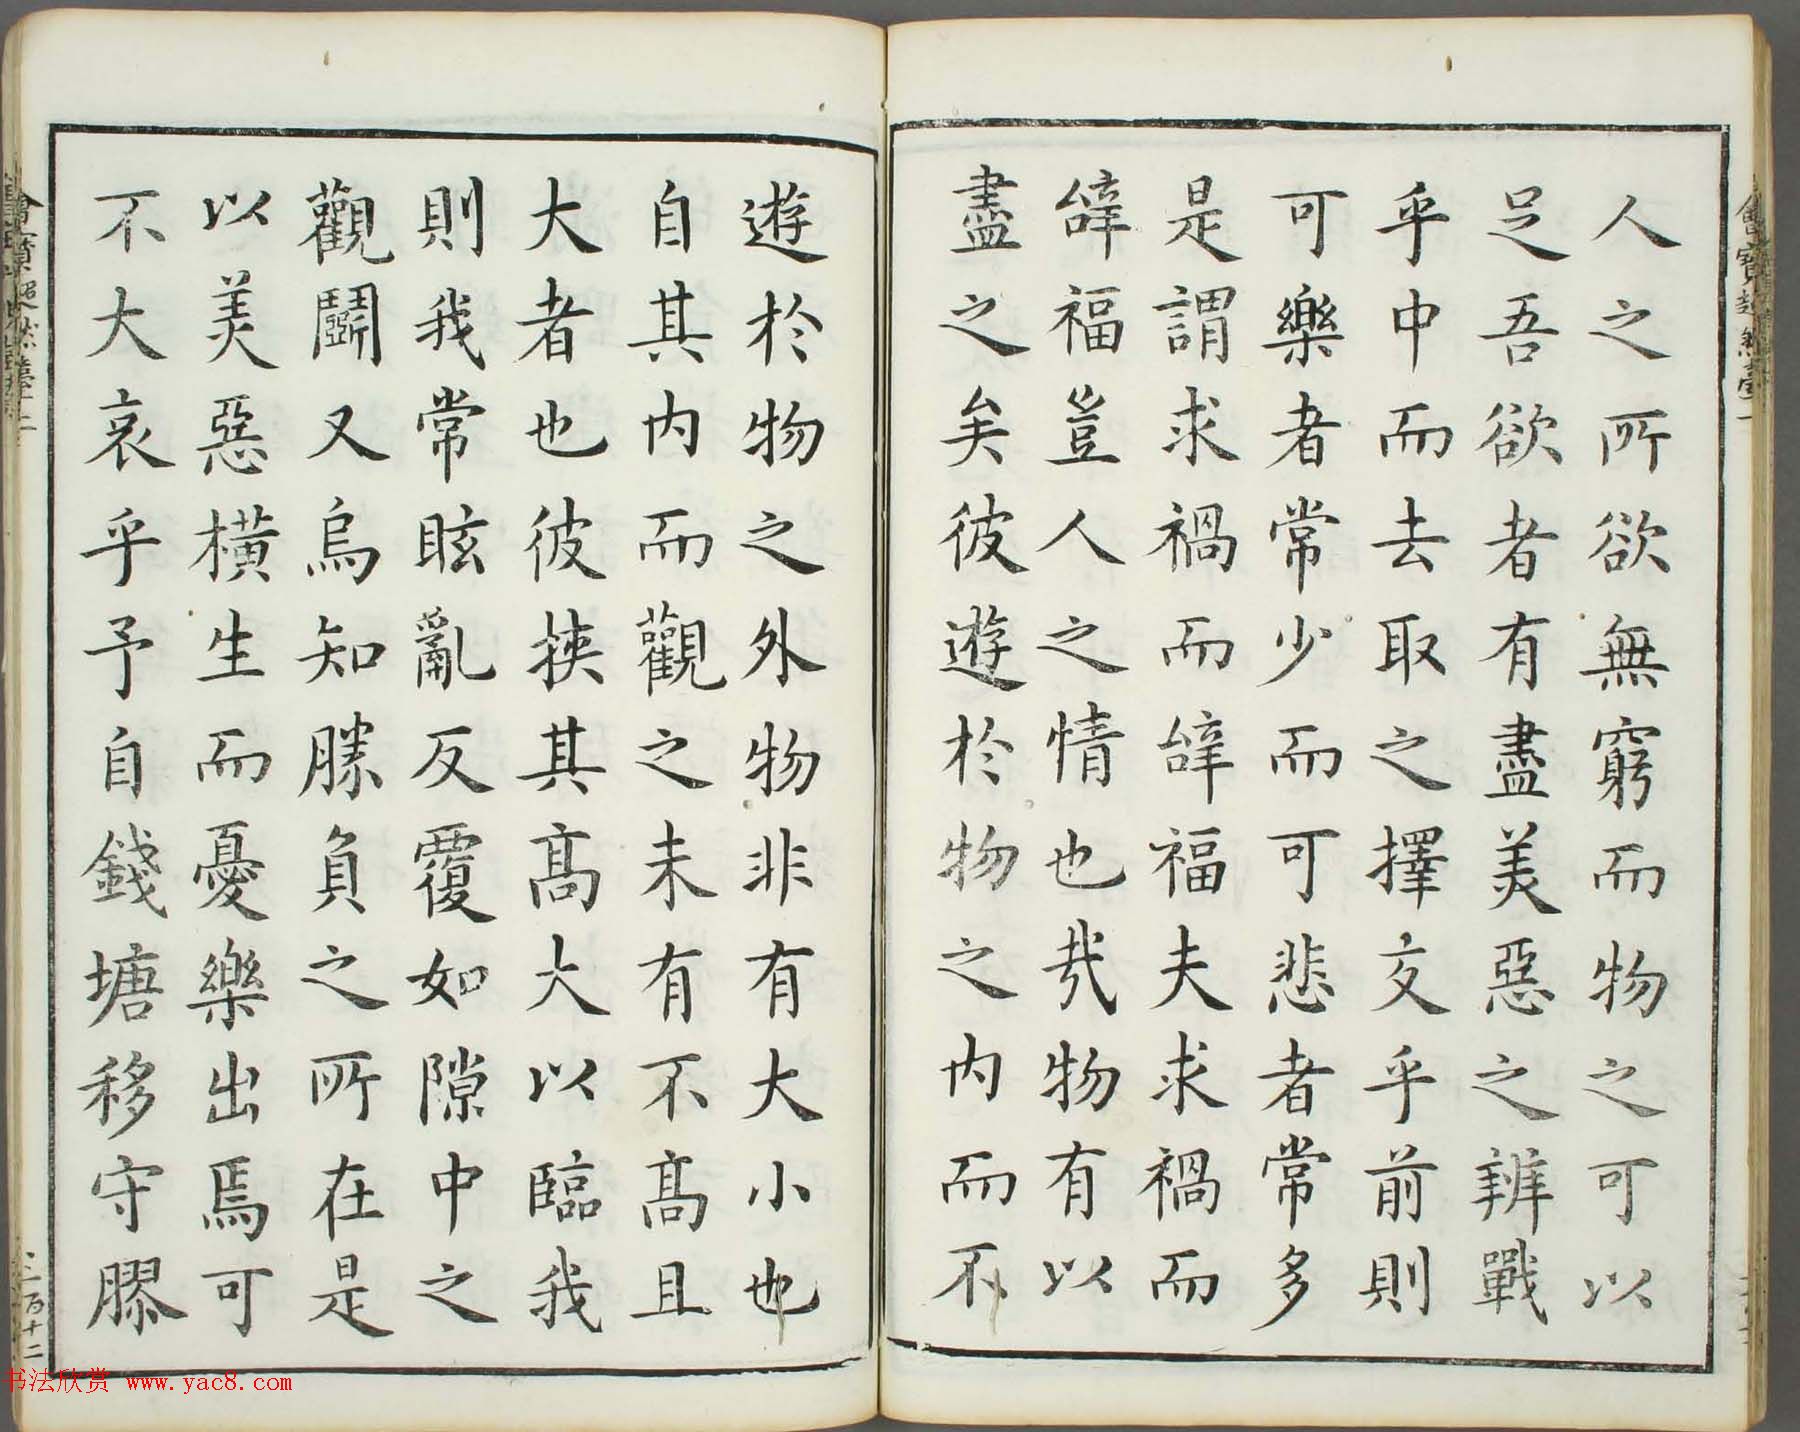 人之所欲無窮而物之可以
足吾欲者有盡美惡之辨戰
乎中而去取之擇交乎前則
可樂者常少而可悲者常多
是謂求禍而辭福夫求禍而
辭福豈人之情也哉物有以
盡之矣彼遊於物之内而不
遊於物之外物非有大小也
自其内而觀之未有不髙且
大者也彼挾其髙大以臨我
則我常眩亂反覆如隙中之
觀鬭又烏知勝負之所在是
以美惡橫生而憂樂出焉可
不大哀乎予自錢塘移守膠
三百十二
书法欣赏 www.yac8.com